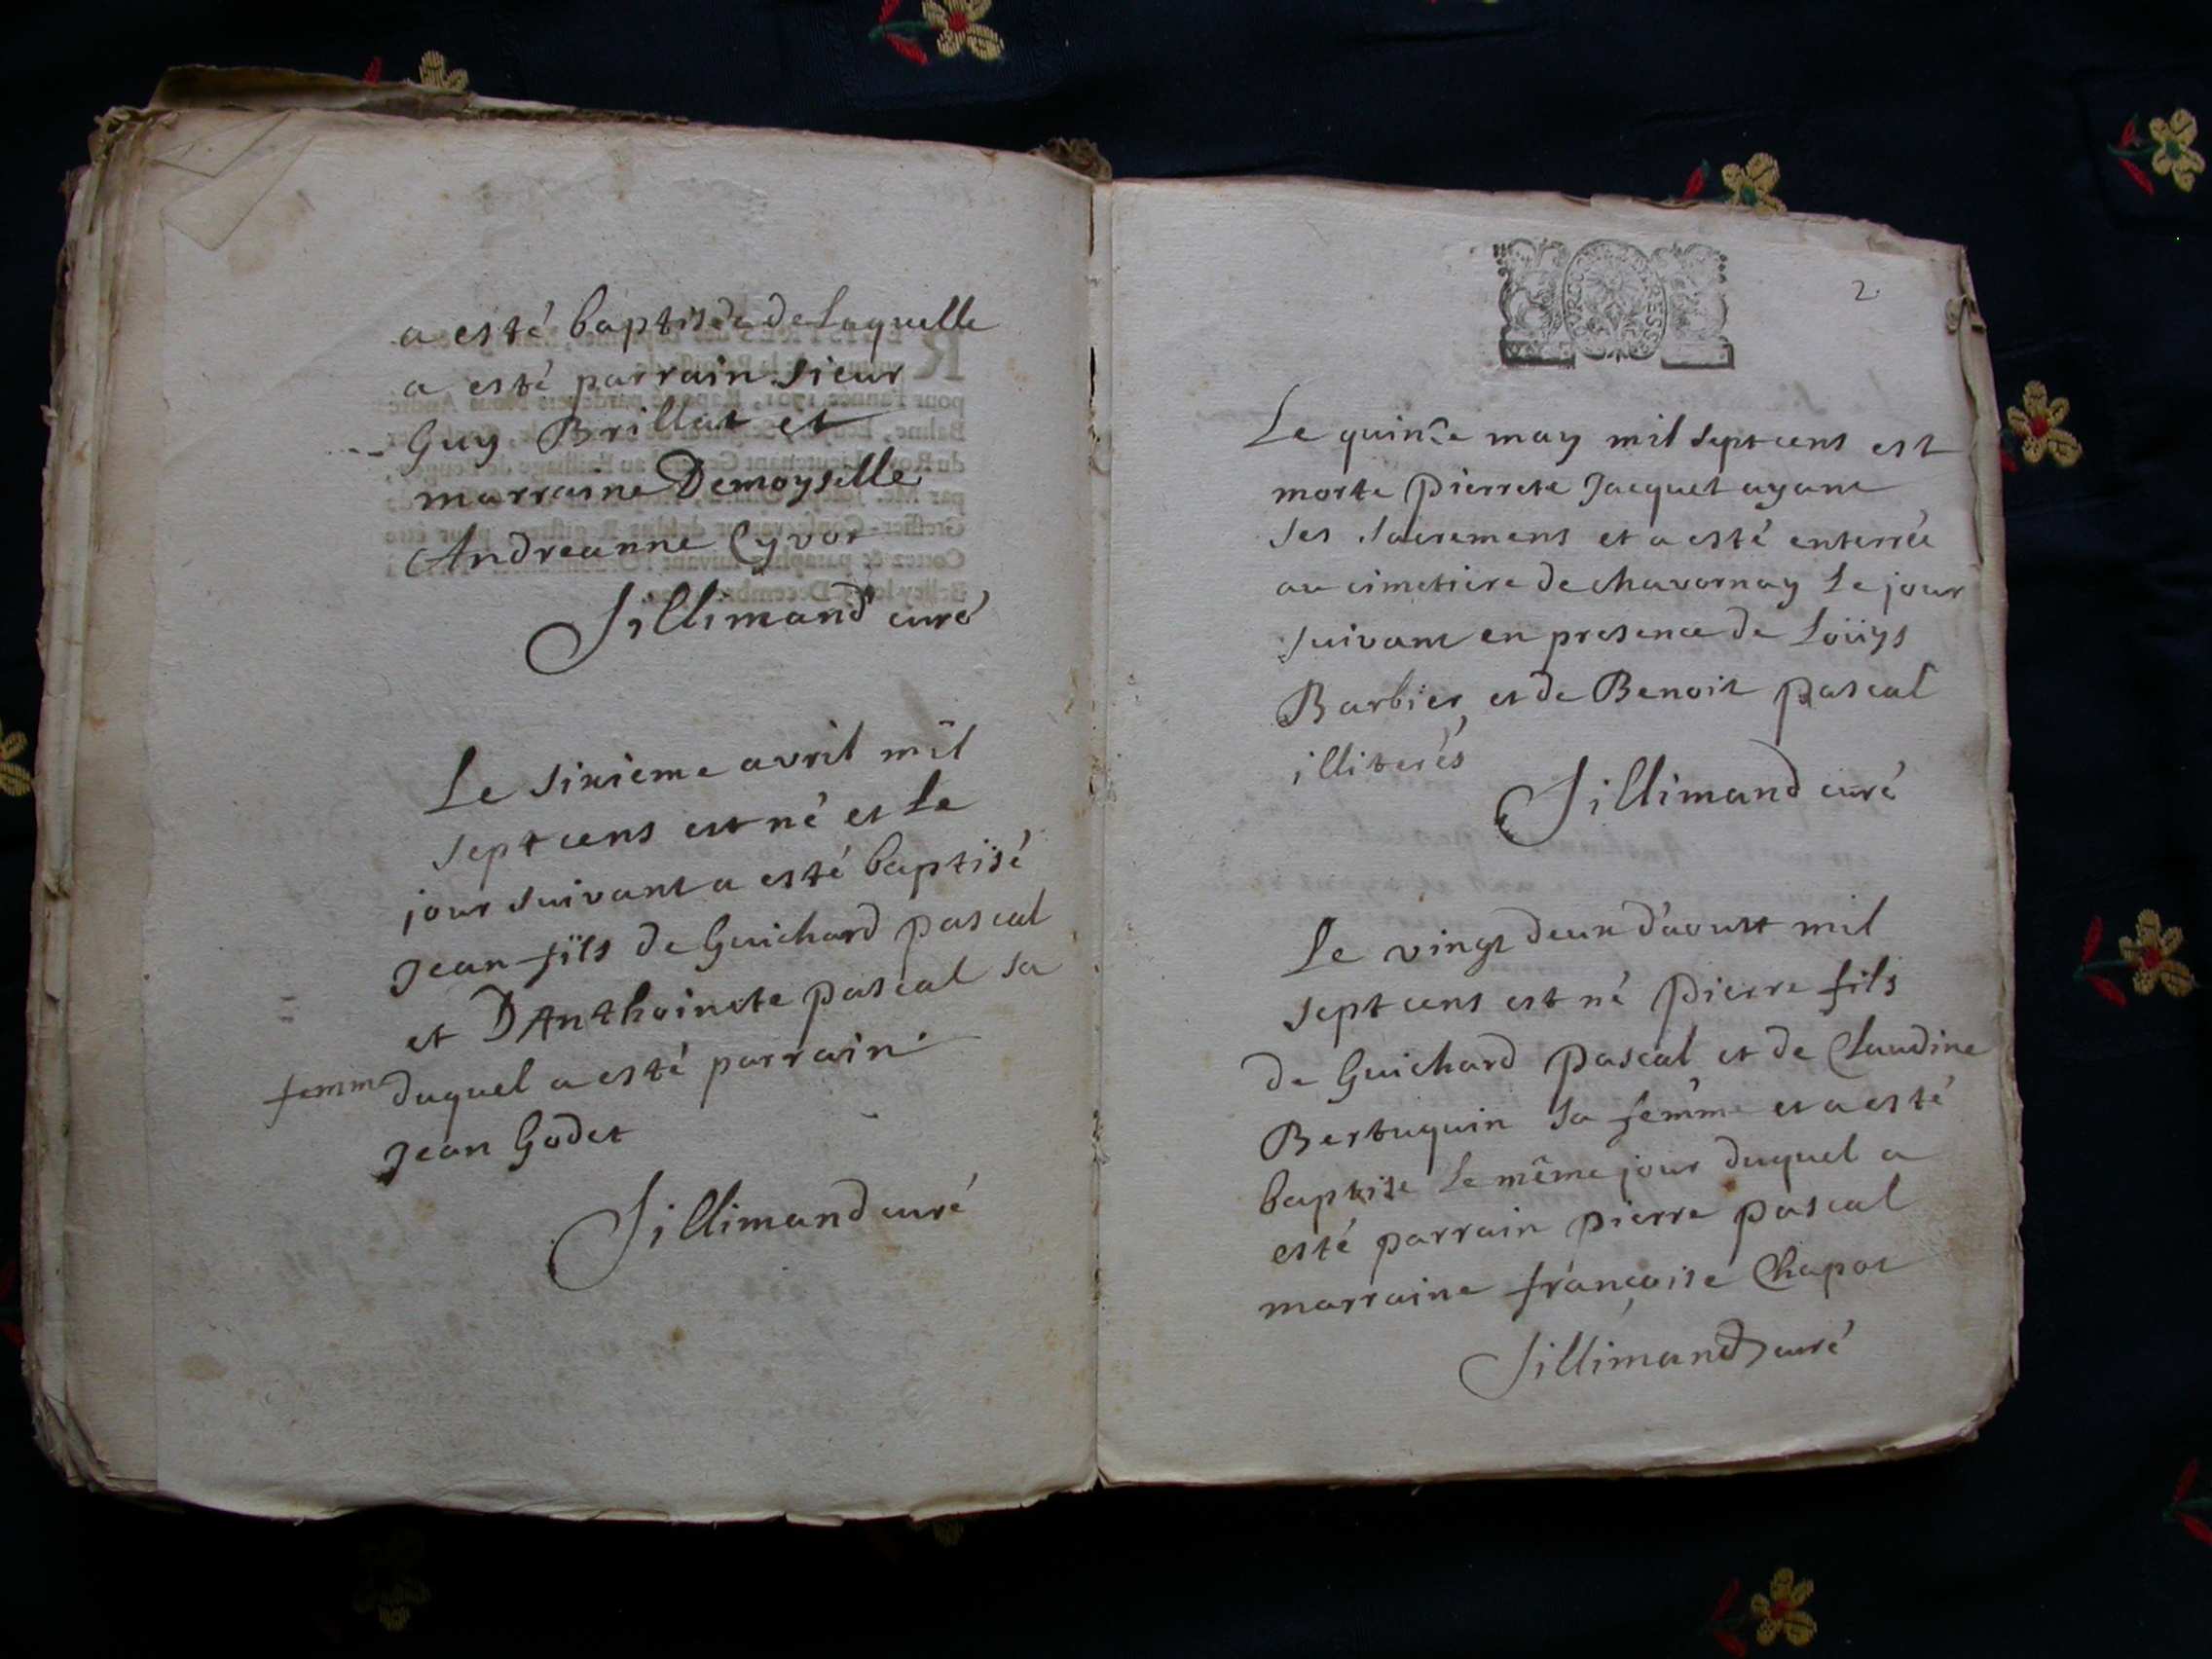 a esté baptisée de Laquelle
a esté parrain sieur
Guy Brillat et
marraine Demoyselle
Andreanne Cyvot
Sillimand curé
Le sixieme avril mil
sept cens est né et Le
jour suivant a esté baptisé
Jean fils de Guichard pascal
et D'Anthoinete pascal sa
femme duquel a esté parrain
Jean Godet
Sillimand curé
2
Le quinze may mil sept cens est
morte pierrete Jacquet ayant
ses sacremens et a esté enterrée
au cimetiere de chavornay Le jour
suivant en presence de Loüys
Barbier et de Benoit pascal
illiterés
Sillimand curé
Le vingt deux d'aoust mil
sept cens est né pierre fils
de Guichard pascal et de Claudine
Bertuquin sa femme et a esté
baptise Le même jour duquel a
esté parrain pierre pascal
marraine françoise Chapot
Sillimand curé